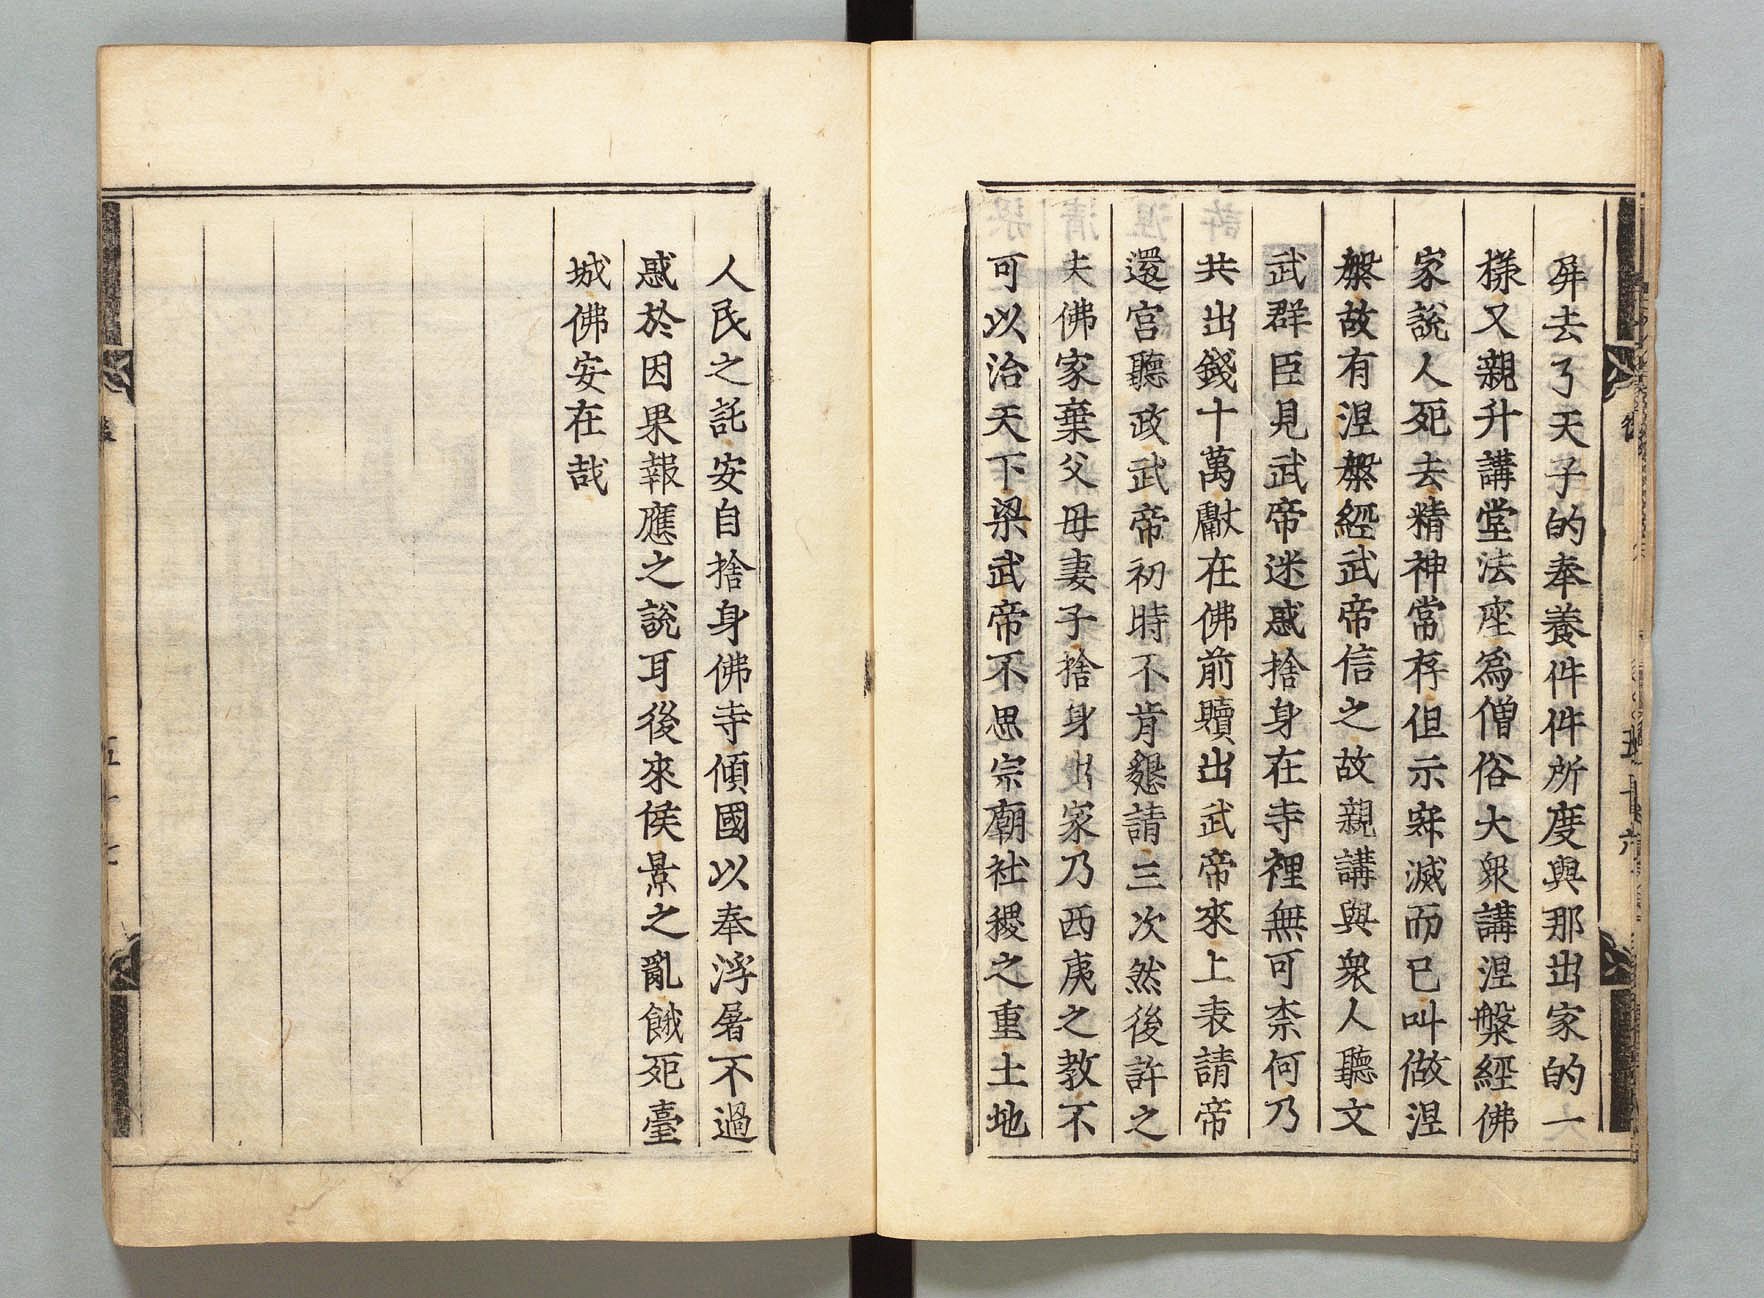 屏去了天子的奉養件件所度與那出家的一
樣又親升講堂法座爲僧俗大衆講涅槃經佛
家說人死去精神常存但示寂滅而已叫做涅
槃故有涅槃經武帝信之故親講與衆人聽文
武群臣見武帝迷惑捨身在寺裡無可柰何乃
共出錢十萬獻在佛前贖出武帝來上表請帝
還宮聽政武帝初時不肯懇請三次然後許之
夫佛家棄父母妻子捨身出家乃西夷之教不
可以治天下梁武帝不思宗廟社稷之重土地
人民之託安自捨身佛寺傾國以奉浮屠不過
惑於因果報應之說耳後來侯景之亂餓死臺
城佛安在哉
五十六
五十七